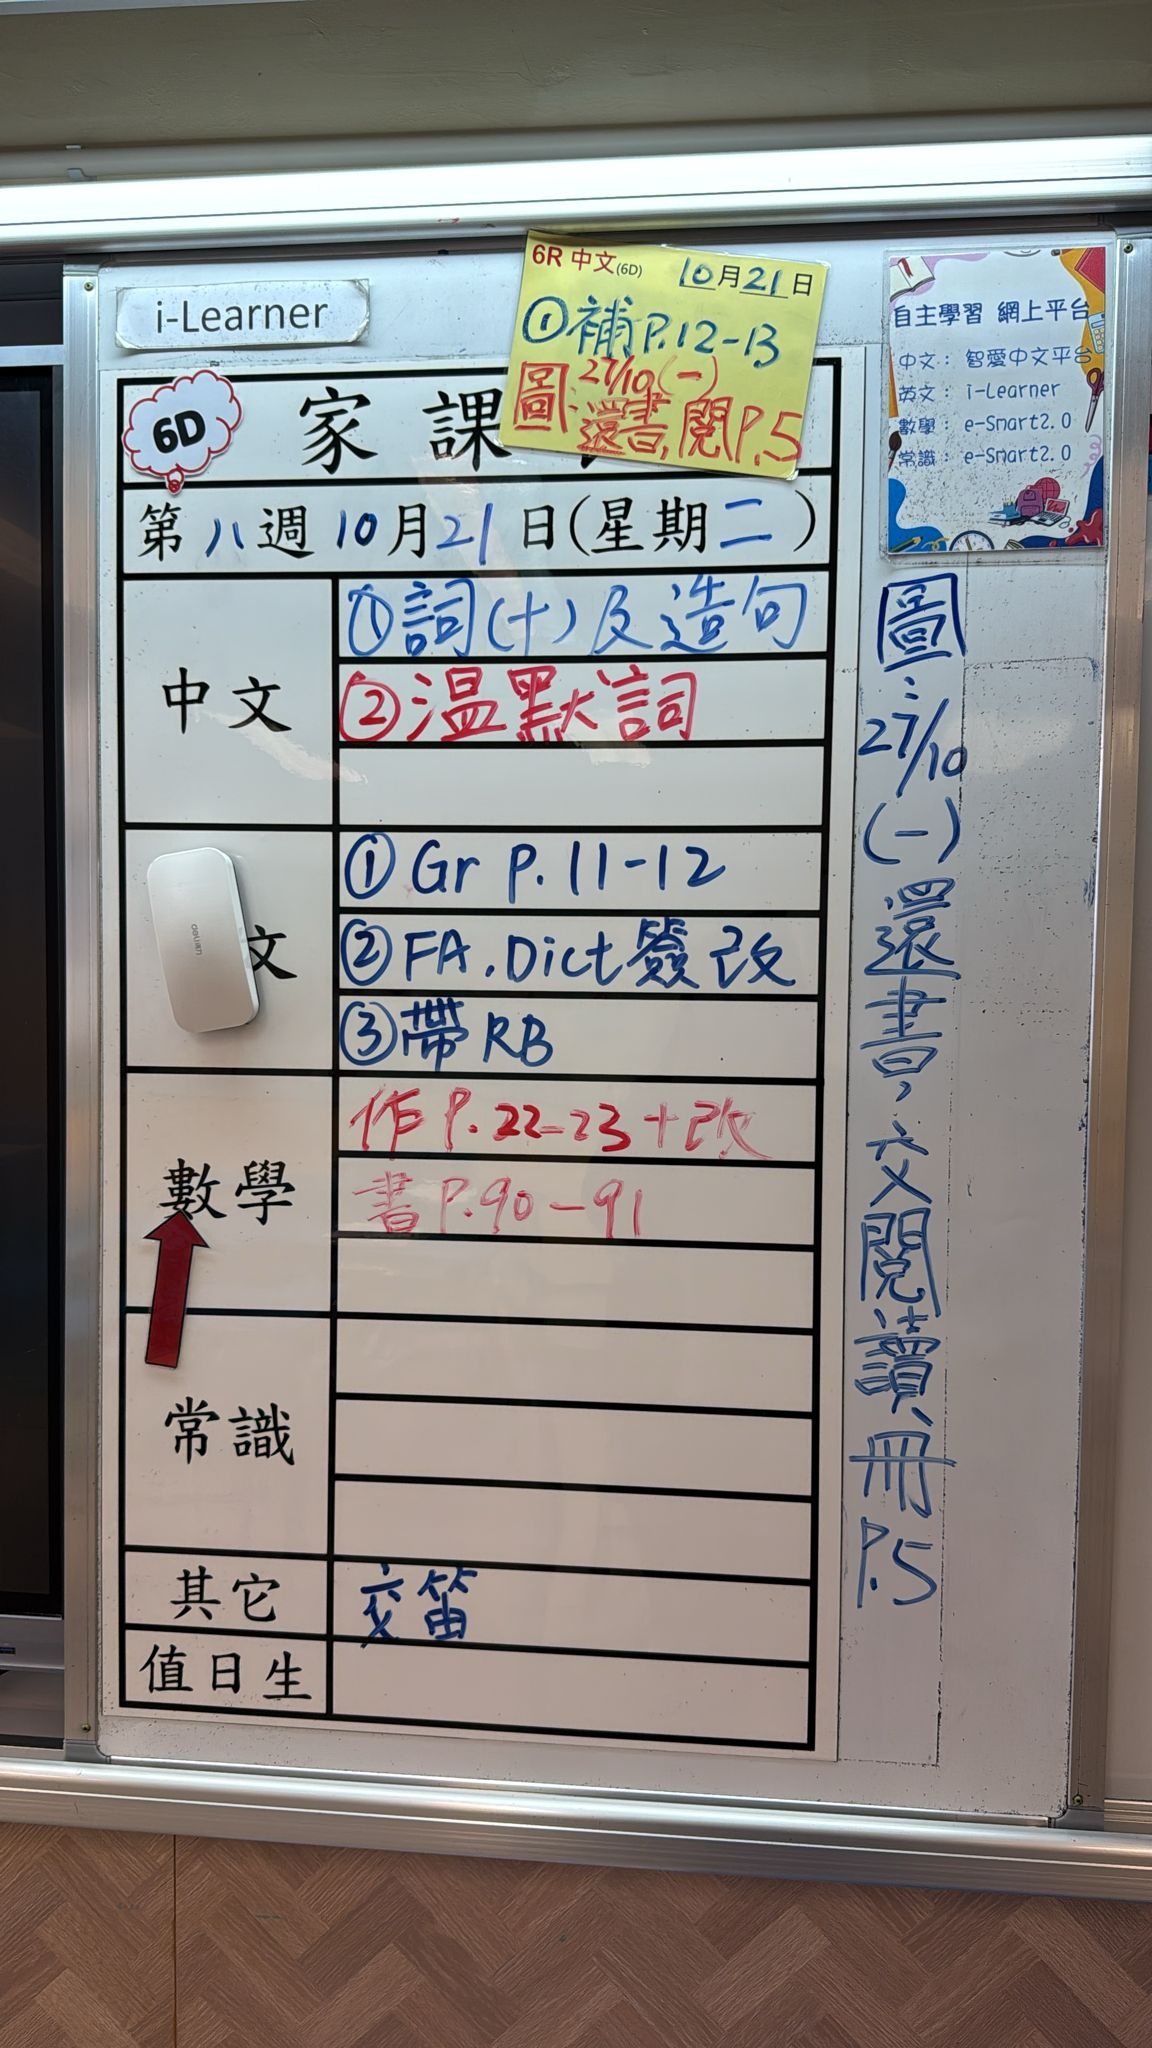 i-Learner
6R 中文(6D) 10月21日
①補P.12-13
圖:27/10(一)
還書,閱P.5
自主學習 網上平台
中文： 智愛中文平台
英文： i-Learner
數學： e-Smart2.0
常識： e-Smart2.0
6D
家課
第八週10月21日(星期二)
中文
①詞(十)及造句
②温默詞
文
①Gr P.11-12
②FA.Dict簽改
③帶RB
數學
作P.22-23+改
書P.90-91
常識
其它
交笛
值日生
圖:27/10(一)還書,交閱讀冊P.5
deli